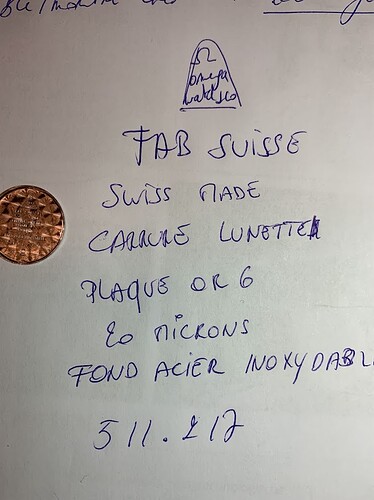 Ω
omega
watch co
FAB SUISSE
SWISS MADE
CARRURE LUNETTE
PLAQUE OR G
20 MICRONS
FOND ACIER INOXYDABL
511.217